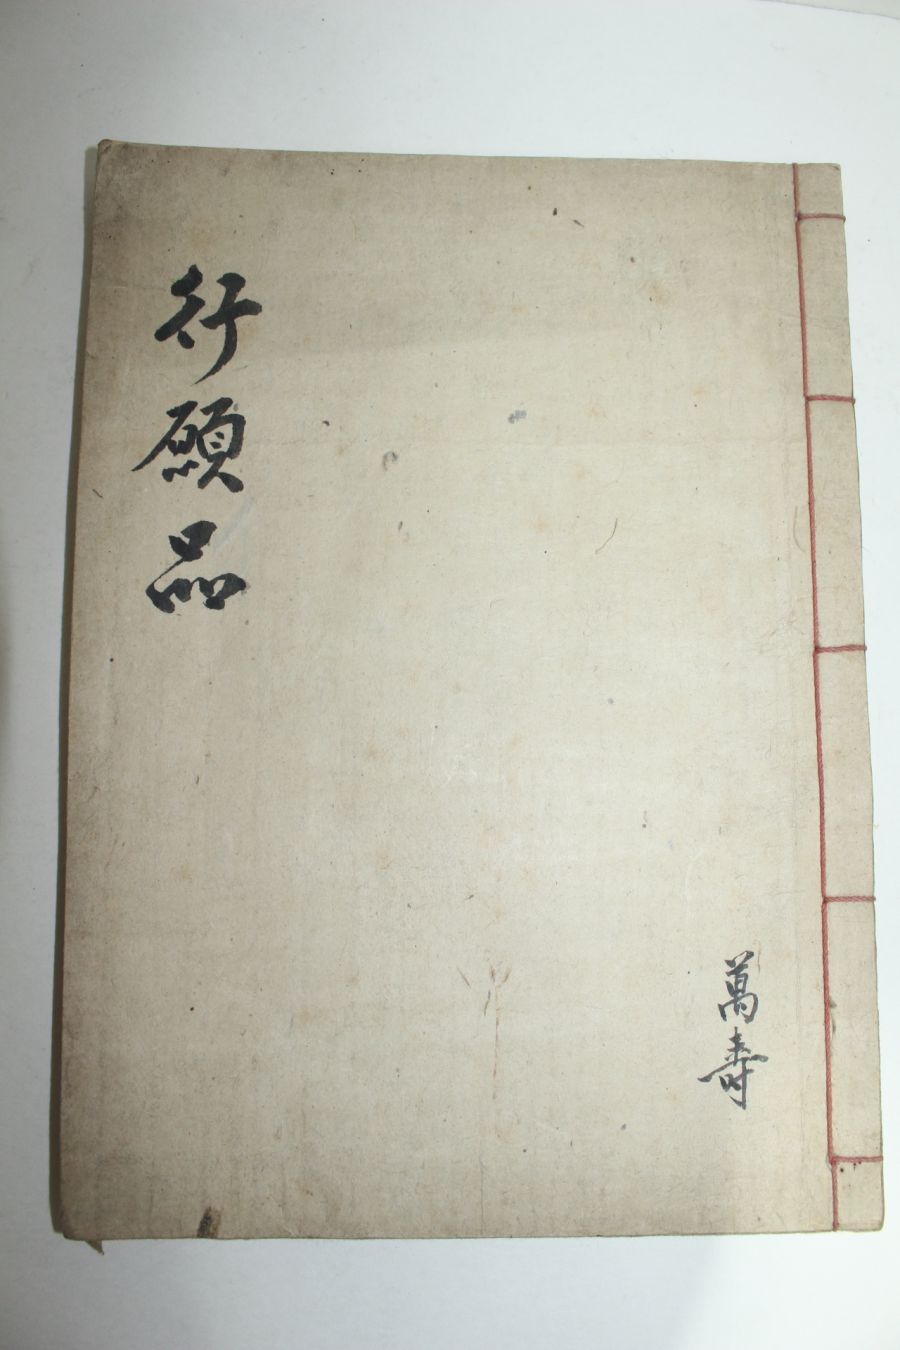 行願品
萬壽